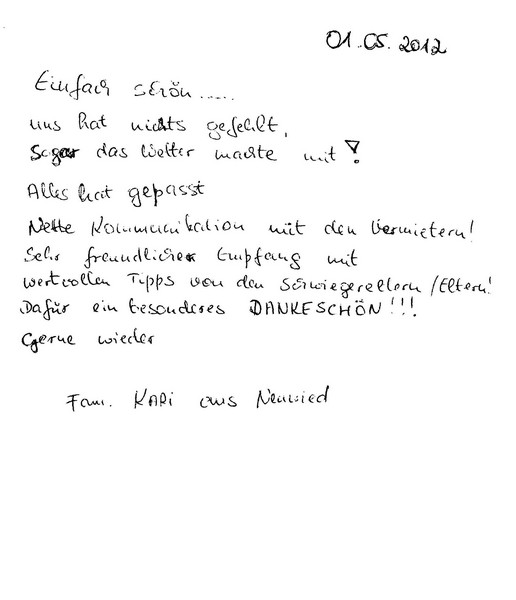 01.05.2012
Einfach schön.....
uns hat nichts gefehlt,
Sogar das Wetter machte mit!
Alles hat gepasst
Nette Kommunikation mit den Vermietern!
Sehr freundlicher Empfang mit
wertvollen Tipps von den Schwiegereltern/Eltern!
Dafür ein besonderes DANKESCHÖN!!!
Gerne wieder
Fam. aus Neuwied